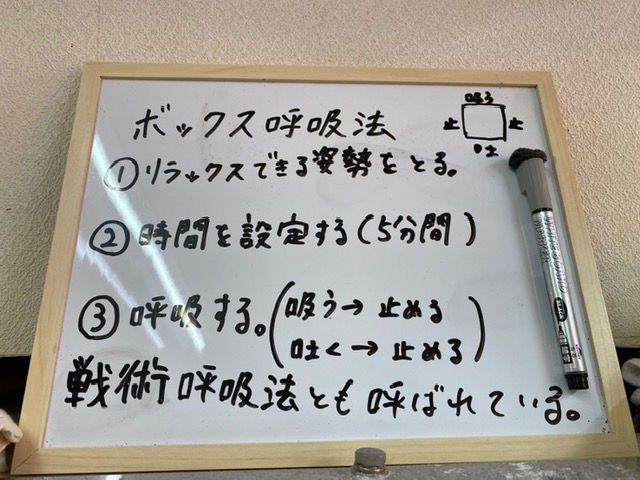 ボックス呼吸法
吸う
止 止
吐
①リラックスできる姿勢をとる。
②時間を設定する(5分間)
③呼吸する。(吸う→止める
吐く→止める)
戦術呼吸法とも呼ばれている。